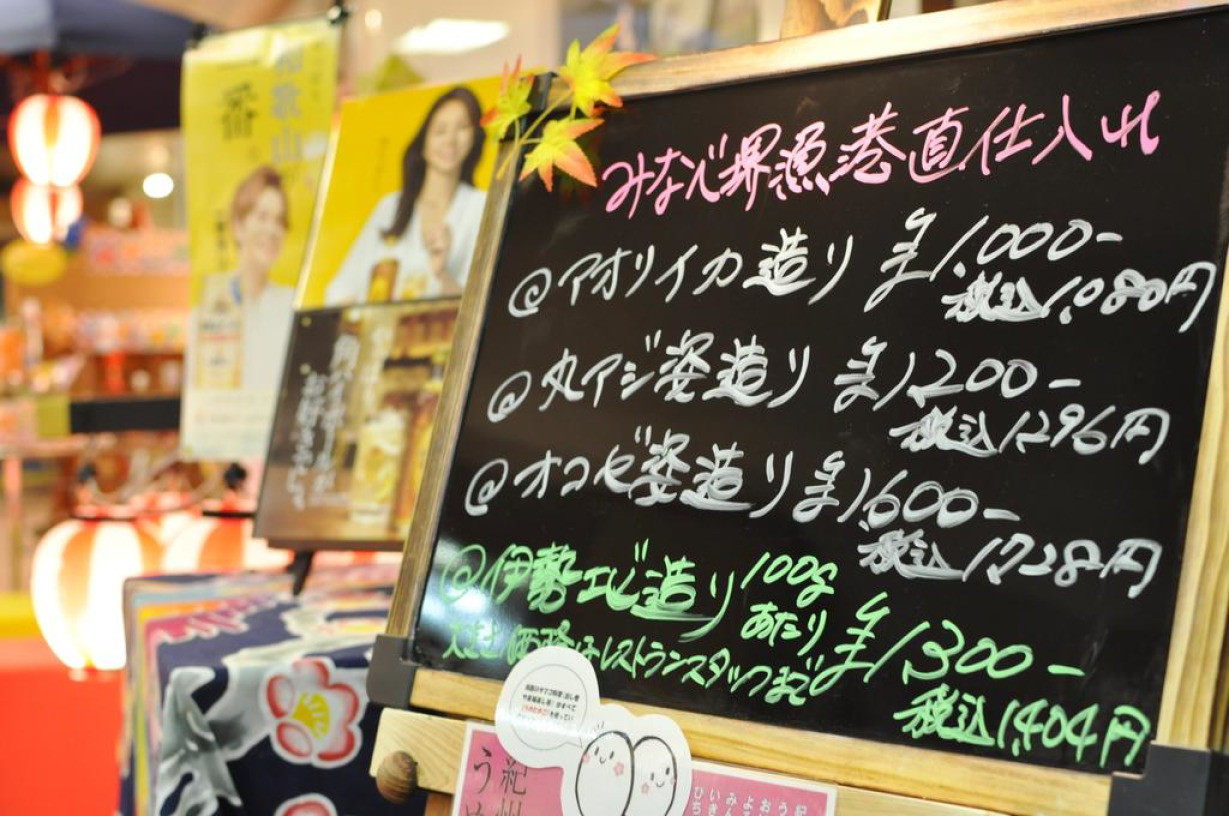 和歌山
一番
みなべ堺漁港直仕入れ
@アオリイカ造り ¥1,000-
税込1,080円
@丸アジ姿造り ¥1200-
税込1296円
@オコゼ姿造り ¥1,600-
税込1728円
@伊勢エビ造り 100gあたり ¥1300-
税込1,404円
大きさ 価格はレストランスタッフまで
紀州
うめ